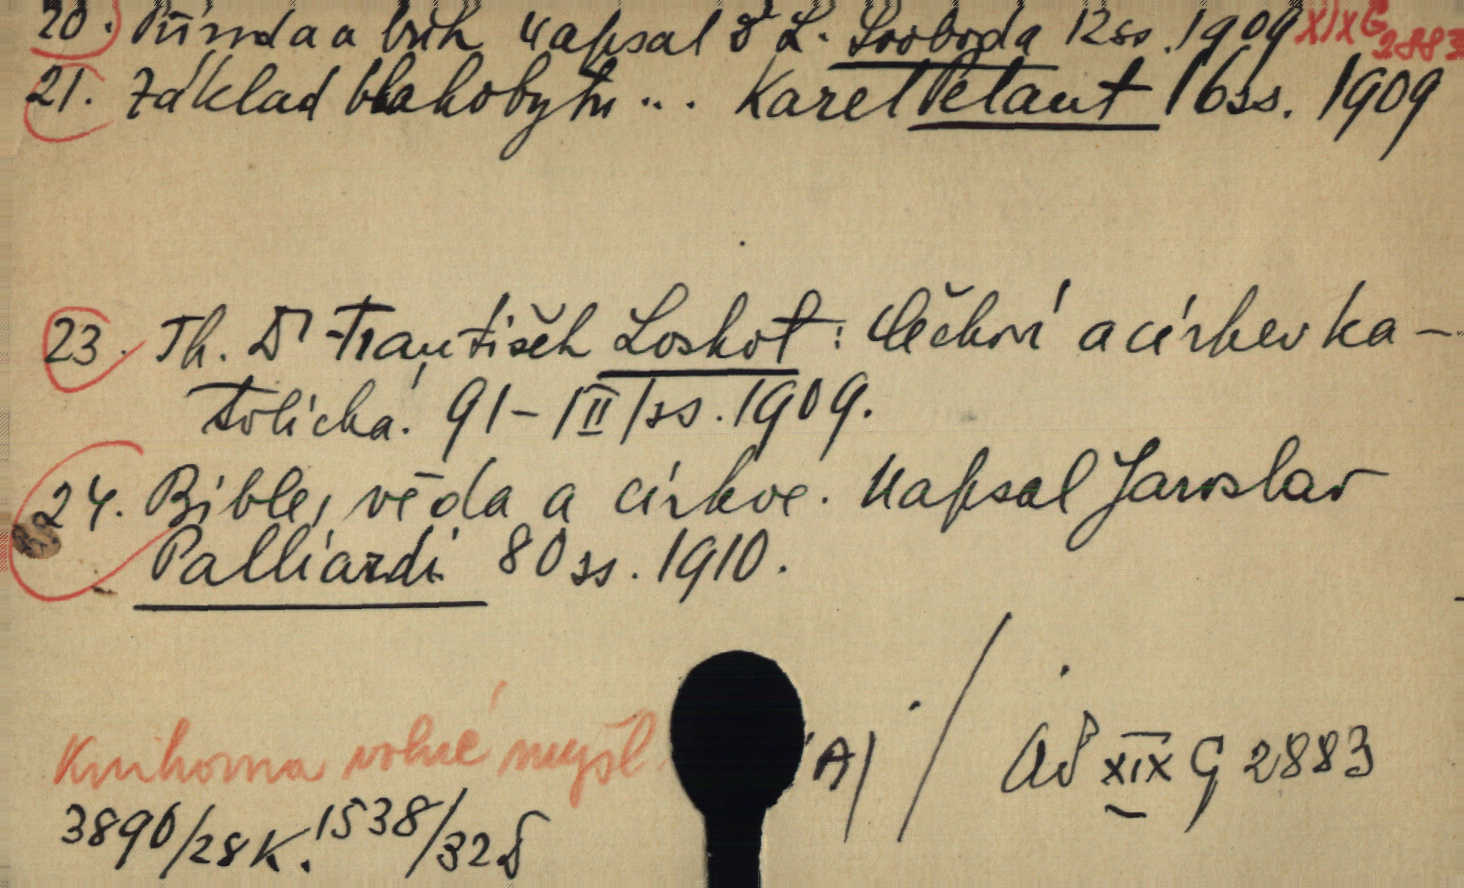 20. Příroda a bůh napsal F. L. Svoboda 12ss. 1909 XIX G 2883
21. Základ blahobytu ... Karel Pelant 16ss. 1909
23. Th. Dr František Loskot: Čechové a církev ka-
tolická. 91-|II|ss. 1909.
24. Bible, věda a církve. Napsal Jaroslav
Palliardi 80ss. 1910.
Knihovna volné myšl
A| / XIX G 2883
3890/28K. 1538/32